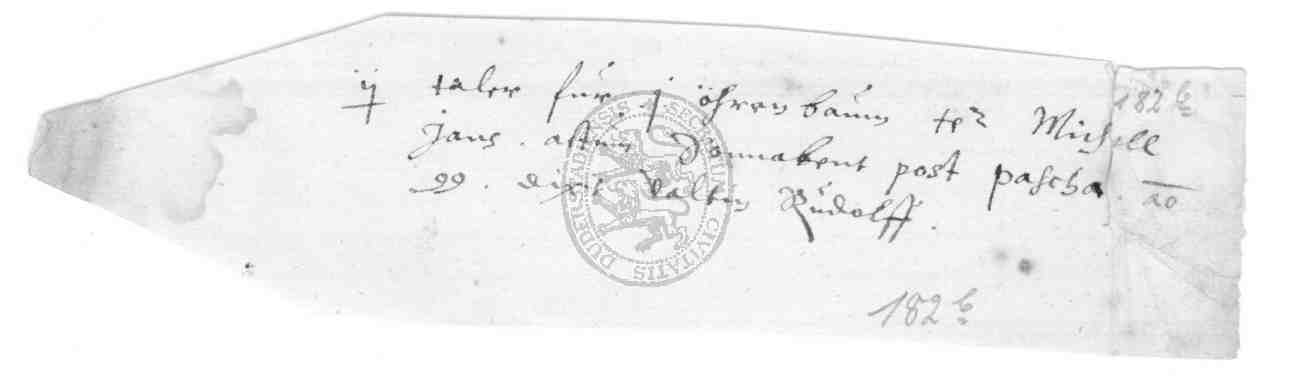 ij taler für j öhrenbaum ... Michell
Jans . actum Sonnabent post pascha .
99 . dixit Valtin Rudolff .
182 b
20
182 b
SECRETUM CIVITATIS DUDERSTADENSIS